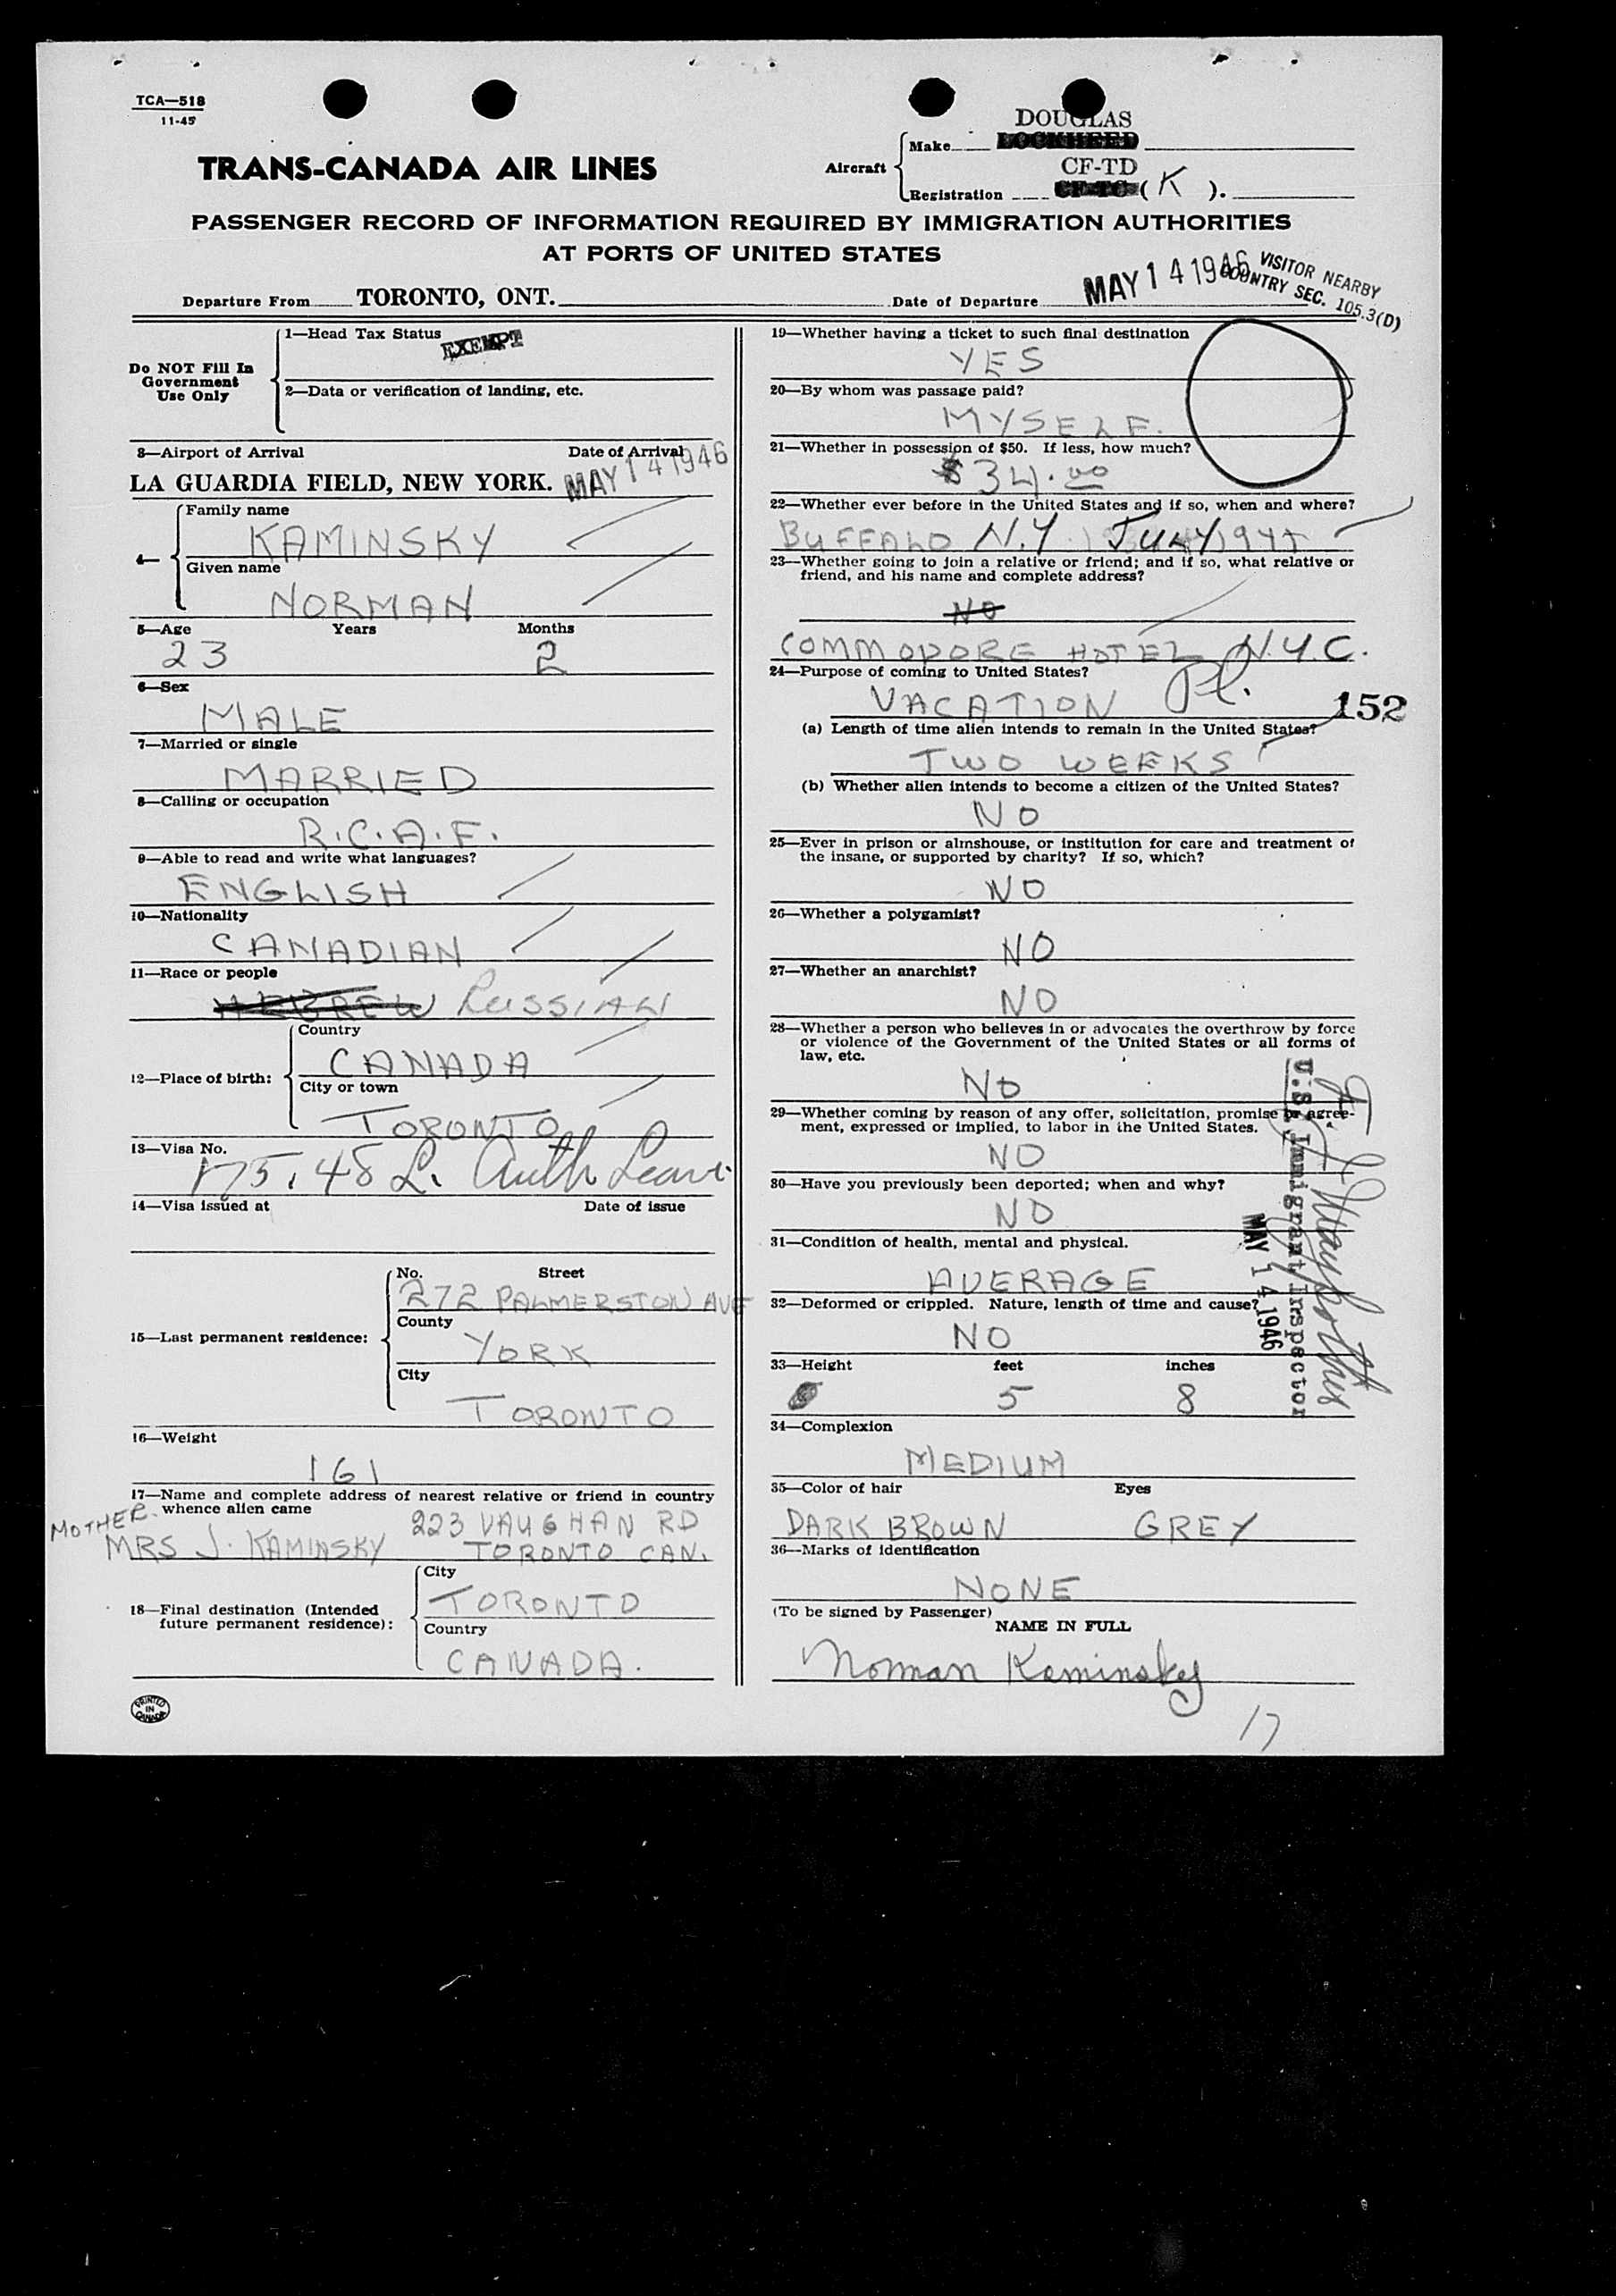 TCA—518
11-45
DOUGLAS
Aircraft
Make LOCKHEED
TRANS-CANADA AIR LINES
CF-TD
Registration CF-TC (K).
PASSENGER RECORD OF INFORMATION REQUIRED BY IMMIGRATION AUTHORITIES
AT PORTS OF UNITED STATES
Departure From TORONTO, ONT. Date of Departure MAY 14 1946
VISITOR NEARBY
COUNTRY SEC. 105.3(D)
Do NOT Fill In
Government
Use Only
1—Head Tax Status EXEMPT
2—Data or verification of landing, etc.
3—Airport of Arrival Date of Arrival
LA GUARDIA FIELD, NEW YORK. MAY 14 1946
4—
Family name
KAMINSKY
Given name
NORMAN
5—Age Years Months
23 2
6—Sex
MALE
7—Married or single
MARRIED
8—Calling or occupation
R.C.A.F.
9—Able to read and write what languages?
ENGLISH
10—Nationality
CANADIAN
11—Race or people
HEBREW RUSSIAN
12—Place of birth:
Country
CANADA
City or town
TORONTO
13—Visa No.
175.48 L. Auth Leave
14—Visa issued at Date of issue
15—Last permanent residence:
No. Street
272 PALMERSTON AVE
County
YORK
City
TORONTO
16—Weight
161
17—Name and complete address of nearest relative or friend in country
whence alien came
MOTHER. 223 VAUGHAN RD
MRS J. KAMINSKY TORONTO CAN.
18—Final destination (Intended
future permanent residence):
City
TORONTO
Country
CANADA.
PRINTED
IN
CANADA
19—Whether having a ticket to such final destination
YES
20—By whom was passage paid?
MYSELF.
21—Whether in possession of $50. If less, how much?
$34.00
22—Whether ever before in the United States and if so, when and where?
BUFFALO N.Y. JULY 1945
23—Whether going to join a relative or friend; and if so, what relative or
friend, and his name and complete address?
NO
COMMODORE HOTEL N.Y.C.
24—Purpose of coming to United States?
VACATION Pl.
152
(a) Length of time alien intends to remain in the United States?
TWO WEEKS
(b) Whether alien intends to become a citizen of the United States?
NO
25—Ever in prison or almshouse, or institution for care and treatment of
the insane, or supported by charity? If so, which?
NO
26—Whether a polygamist?
NO
27—Whether an anarchist?
NO
28—Whether a person who believes in or advocates the overthrow by force
or violence of the Government of the United States or all forms of
law, etc.
NO
29—Whether coming by reason of any offer, solicitation, promise or agree-
ment, expressed or implied, to labor in the United States.
NO
30—Have you previously been deported; when and why?
NO
31—Condition of health, mental and physical.
AVERAGE
32—Deformed or crippled. Nature, length of time and cause?
NO
33—Height feet inches
5 8
34—Complexion
MEDIUM
35—Color of hair Eyes
DARK BROWN GREY
36—Marks of identification
NONE
(To be signed by Passenger)
NAME IN FULL
Norman Kaminsky
17
U.S. Immigrant Inspector
MAY 14 1946